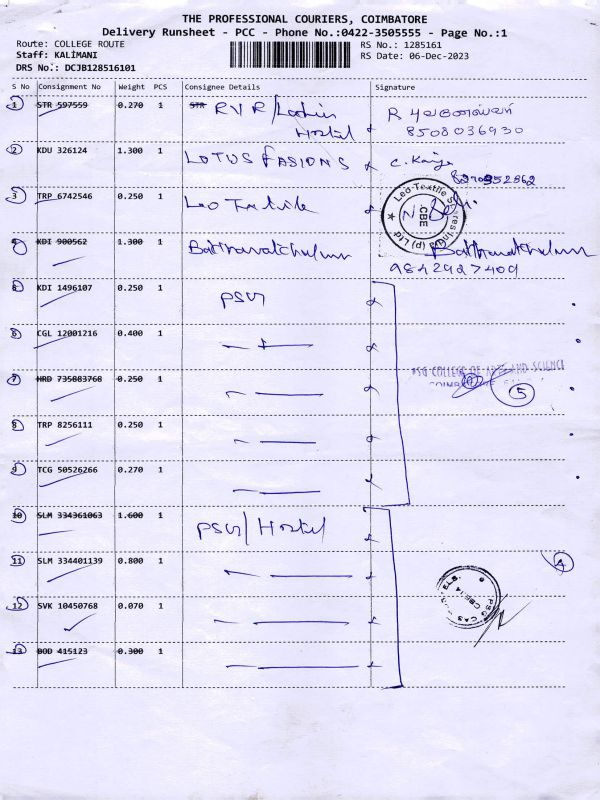 THE PROFESSIONAL COURIERS, COIMBATORE
Delivery Runsheet - PCC - Phone No.:0422-3505555 - Page No.:1
Route: COLLEGE ROUTE
RS No.: 1285161
Staff: KALIMANI
RS Date: 06-Dec-2023
DRS No.: DCJB128516101
S No Consignment No Weight PCS Consignee Details Signature
1 STR 597559 0.270 1 STR RVR/Ladies
Hostel
8508036930
2 KDU 326124 1.300 1 LOTUS FASIONS
3 TRP 6742546 0.250 1 Leo Textile
Leo Textile CBE (p) Ltd
4 KDI 900562 1.300 1
9842927409
5 KDI 1496107 0.250 1 PSG
6 CGL 12001216 0.400 1
PSG COLLEGE OF ARTS AND SCIENCE
7 HRD 735883768 0.250 1
5
8 TRP 8256111 0.250 1
9 TCG 50526266 0.270 1
10 SLM 334361063 1.600 1 PSG/Hostel
11 SLM 334401139 0.800 1
4
PSG CAS
CBE-14
12 SVK 10450768 0.070 1
13 BOD 415123 0.300 1